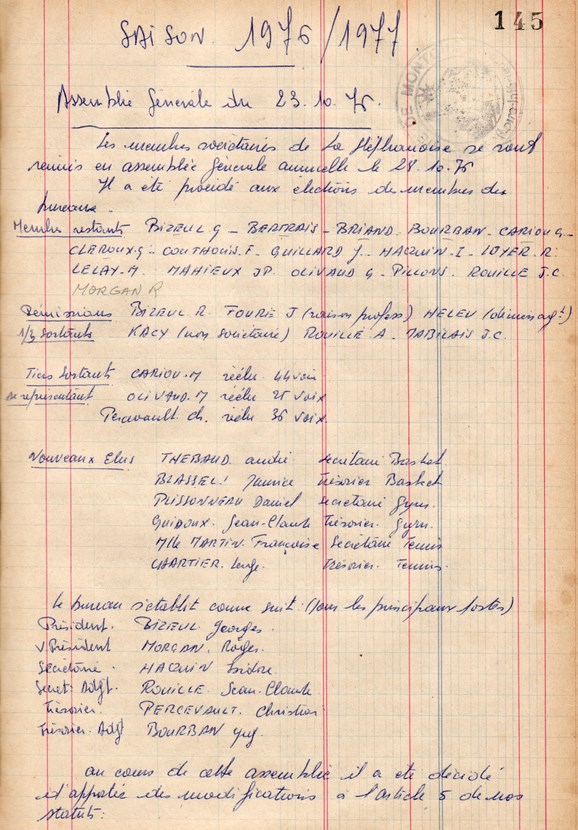 145
SAISON 1976/1977
Assemblée Générale du 23.10.76.
Les membres sociétaires de la Stéphanoise se sont
réunis en assemblée générale annuelle le 23.10.76
Il a été procédé aux élections de membres du
bureau.
Membres restants BIZEUL G - BERTRAIS - BRIAND. BOURBAN - CARIOU G -
CLEROUX G - COUTHOUIS. F - GUILLARD J - HACQUIN - I - LOYER. R.
LELAY. M. MAHIEUX JP. OLIVAUD G - PILLONS. ROUILLE J.C.
MORGAN R
Démissions BIZEUL R. FOURIE J (raison profess) HELEU
1/3 sortants KACY (non sociétaire) ROUILLE A. JABILAIS J.C.
Tiers sortants CARIOU. M réélu 44 voix
se représentant OLIVAUD. M réélu 25 voix
Percevault. Ch. réélu 36 voix.
Nouveaux Elus THEBAUD. andré secrétaire Basket.
BLASSEL. Maurice trésorier Basket
PLISSONNEAU Daniel secrétaire Gym.
GUIDOUX. Jean-Claude trésorier. Gym.
Mlle MARTIN. Françoise Secrétaire Tennis
CHARTIER. Serge. trésorier. Tennis.
Le bureau s'établit comme suit: (pour les principaux postes)
Président. BIZEUL Georges.
V. Président MORGAN. Roger.
Secrétaire. HACQUIN Isidore.
Secret. Adjt. ROUILLE. Jean-Claude
Trésorier. PERCEVAULT. Christian
Trésorier. Adjt BOURBAN Guy.
au cours de cette assemblée il a été décidé
d'apporter des modifications à l'article 5 de nos
statuts: